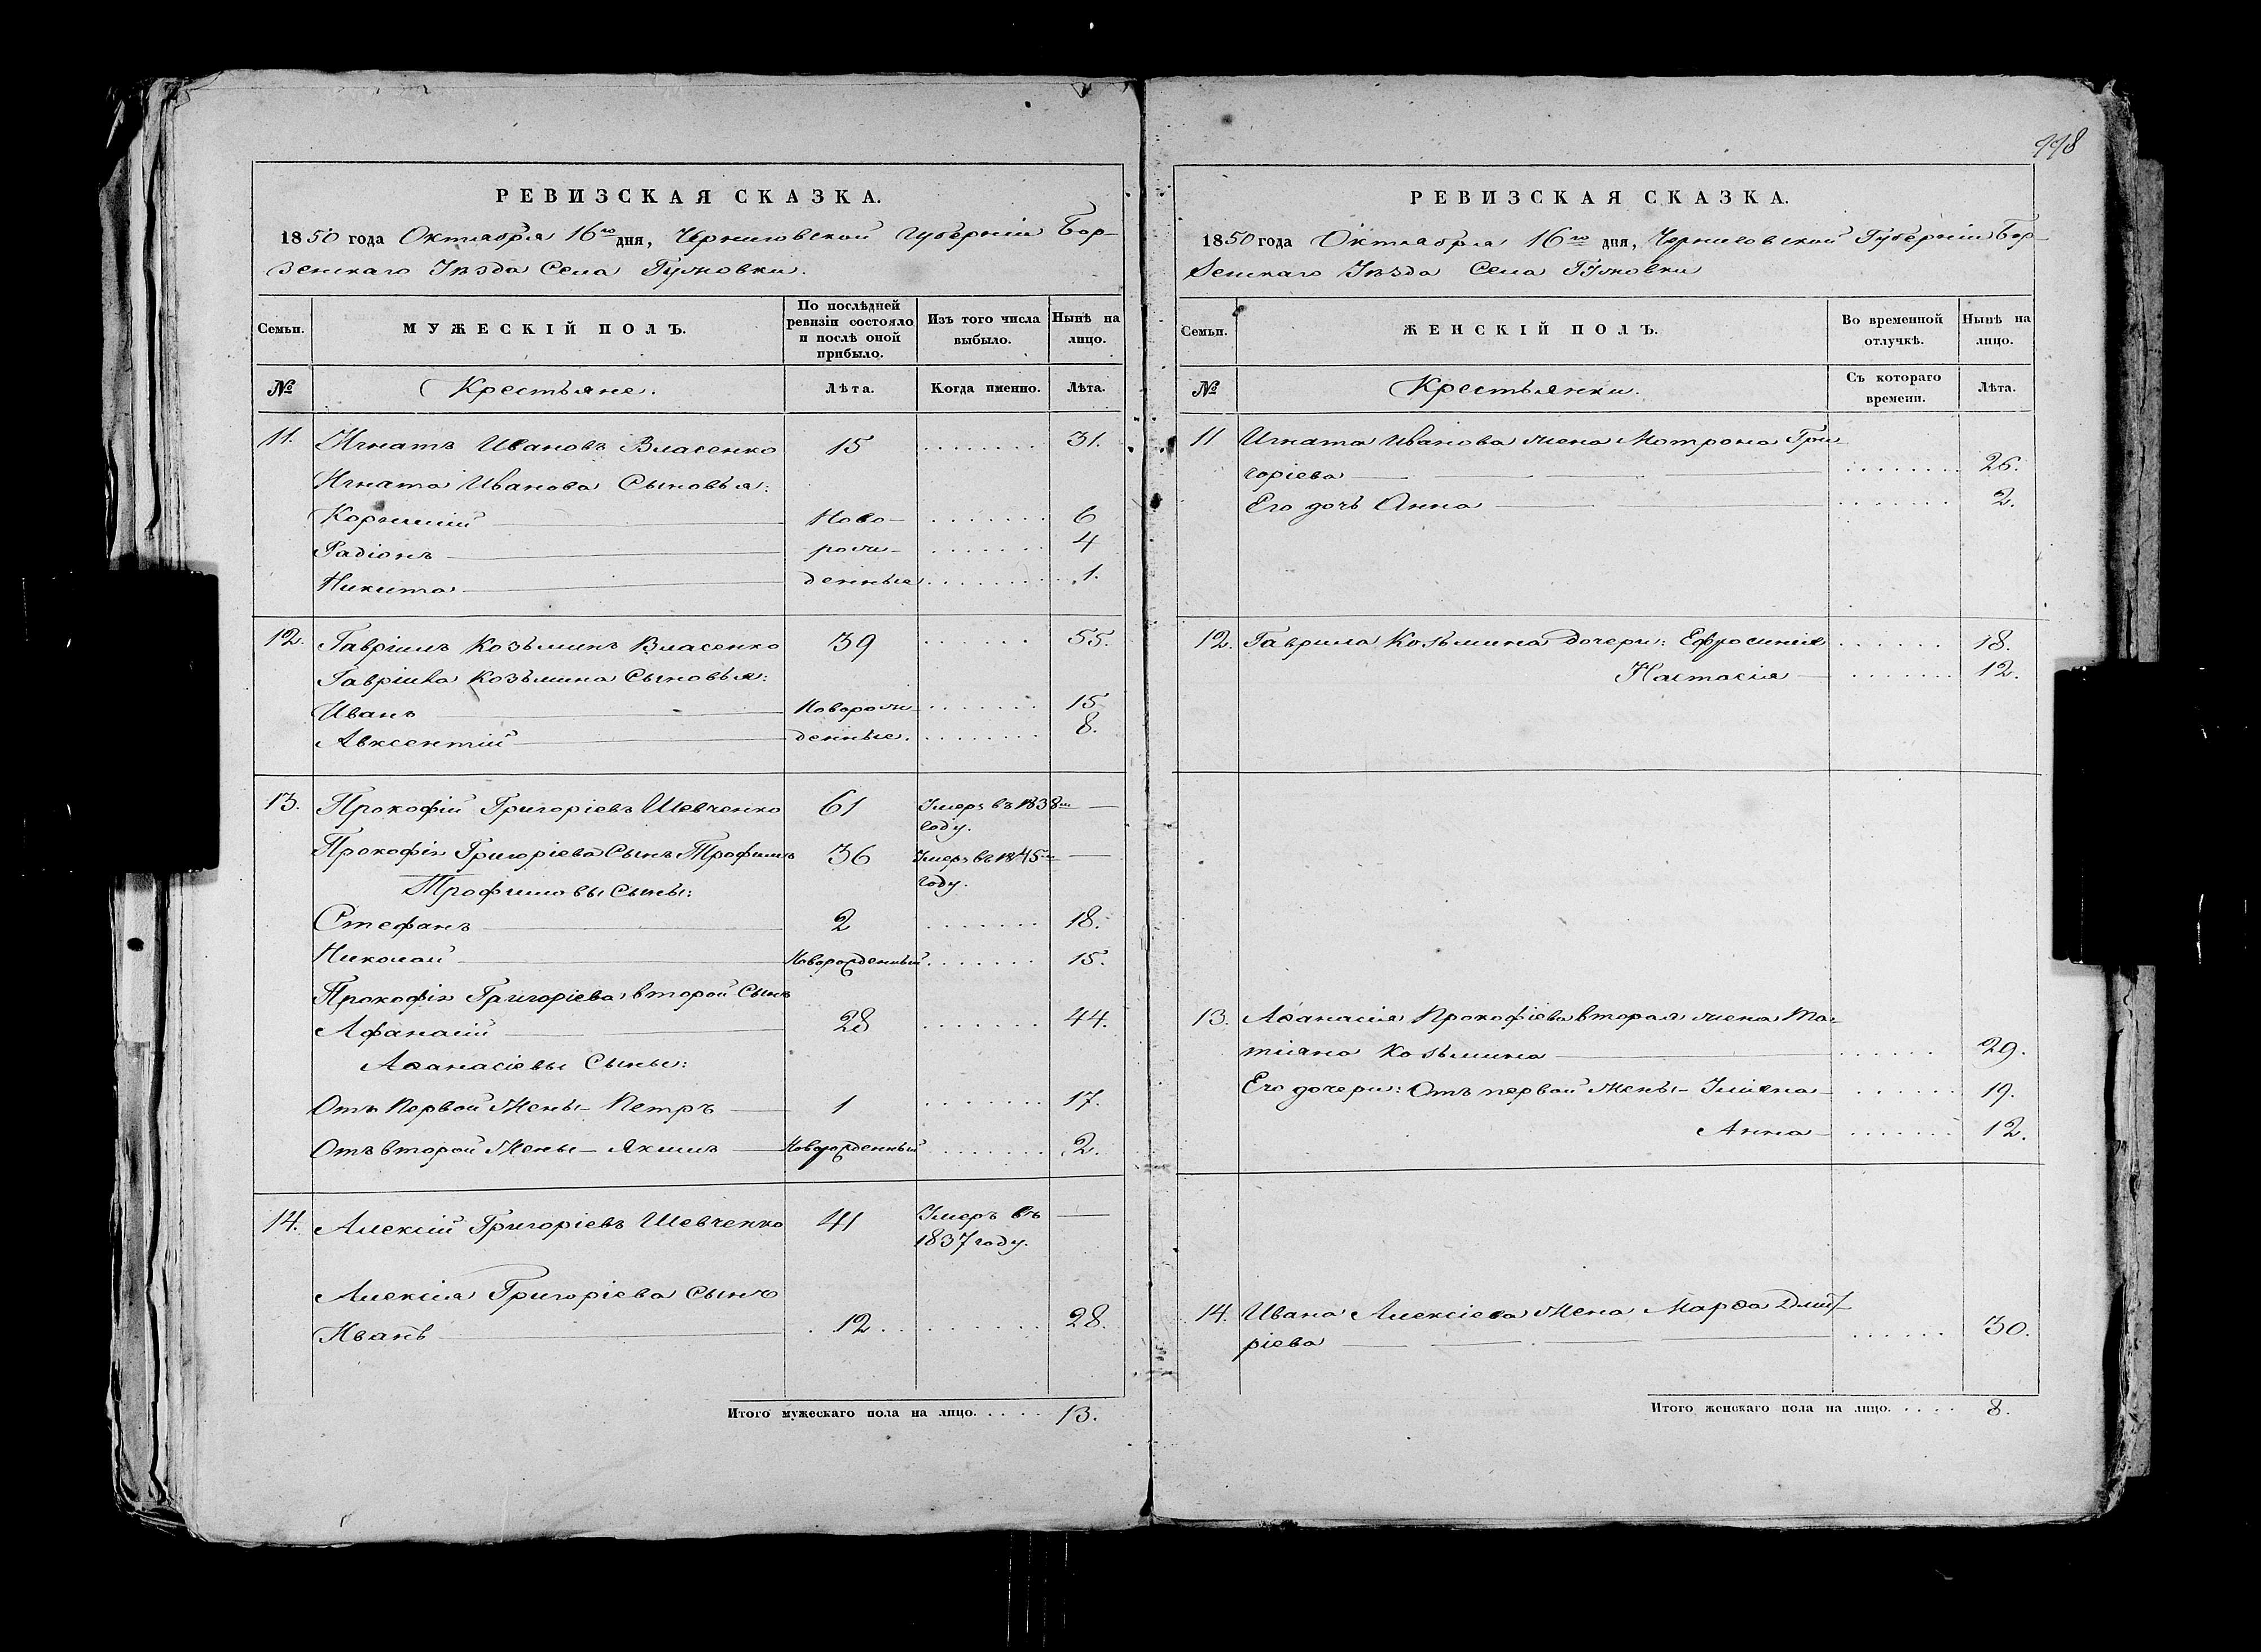 РЕВИЗСКАЯ СКАЗКА.
1850 года Октября 16го дня, Черниговской Губерніи Бор-
зенскаго Уѣзда Села Гужовки.
Семьи.
МУЖЕСКІЙ ПОЛЪ.
По послѣдней ревизіи состояло и послѣ оной прибыло.
Изъ того числа выбыло.
Нынѣ на лицо.
№ Крестьяне. Лѣта. Когда именно. Лѣта.
11. Игнатъ Ивановъ Власенко 15 ........ 31.
Игната Иванова Сыновья:
Корнилій Ново- ....... 6
Радіонъ рож- ....... 4
Никита денные ........ 1.
12. Гавріилъ Козьминъ Власенко 39 ...... 55.
Гавріила Козьмина Сыновья:
Иванъ Новорож- ....... 15
Авксентій денные. ........ 8.
13. Прокофій Григоріевъ Шевченко 61 Умеръ въ 1838м —
году.
Прокофія Григоріева Сынъ Трофимъ 36 Умеръ въ 1845м —
Трофимовы Сыны: году.
Стефанъ 2 ....... 18.
Николай Новорожденный ....... 15.
Прокофія Григоріева второй Сынъ
Афанасій 28 ....... 44.
Аѳанасіевы Сыны:
Отъ Первой Жены – Петръ 1 ....... 17.
Отъ второй Жены – Якимъ Новорожденный ........ 2.
14. Алексій Григоріевъ Шевченко 41 Умеръ въ —
1837 году.
Алексія Григоріева Сынъ
Иванъ 12 ........ 28.
Итого мужескаго пола на лицо..... 13.
118
РЕВИЗСКАЯ СКАЗКА.
1850 года Октября 16го дня, Черниговской Губерніи Бор-
зенскаго Уѣзда Села Гужовки
Семьи.
ЖЕНСКІЙ ПОЛЪ.
Во временной отлучкѣ.
Нынѣ на лицо.
№ Крестьянки. Съ котораго времени. Лѣта.
11 Игната Иванова жена Мотрона Гри-
горіева ........ 26.
Его дочь Анна ........ 2.
12. Гаврила Козьмина Дочери: Ефросинія ...... 18.
Настасія ....... 12.
13. Аѳанасія Прокофіева вторая жена Та-
тіана Козьмина ...... 29.
Его дочери: Отъ первой Жены – Уліяна ...... 19.
Анна ....... 12.
14. Ивана Алексіева Жена Марѳа Дмит-
ріева ...... 30.
Итого женскаго пола на лицо..... 8.